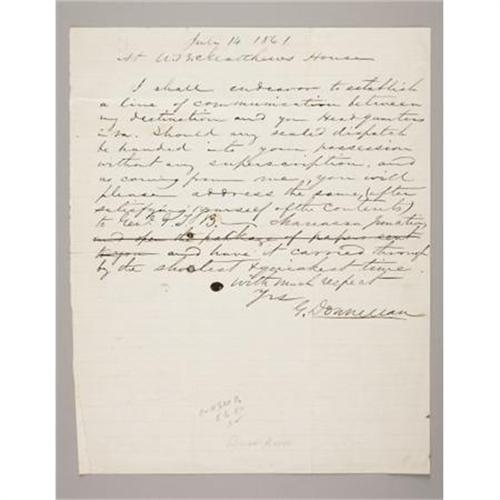 July 14 1861
At W. E. Matthews House
I shall endeavor to establish
a line of communication between
my destination and your Headquarters
in Va. Should any sealed dispatch
be handed into your possession
without any superscription, and
as coming from me, you will
please address the same, (after
satisfying yourself of the contents)
to Genl. G. T. B. Manassas Junction
and open the package of papers sent
to you and have it carried through
by the shortest & quickest time.
With much respect
Yrs
G. Donnellan